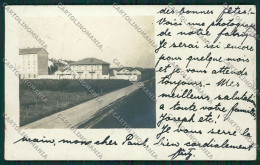 des bonnes fêtes!
Voici une photographie
de notre fabrique
Je serai ici encore
pour quelque mois
et je vous attends
toujours — Mes
meilleurs salutations
a toute votre famille
Joseph etc!
Je vous serre la
main, mons cher Paul, Bien cordialement